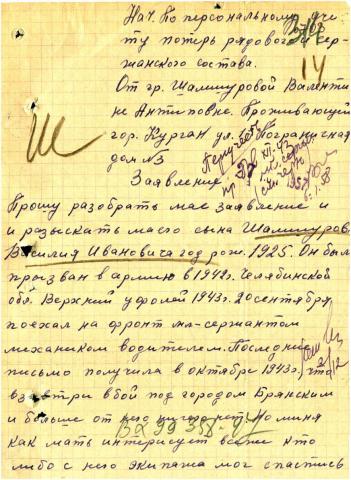 Нач. По персональному уче
ту потерь рядового и сер-
жанского состава.
14
От гр. Шамшуровой Валенти
не Антиповне. Проживающий
гор. Курган ул. Пограничная
дом №3
Ш
Заявление
Прошу разобрать мае заявление и
и разыскать маего сына Шамшуров
Василия Ивановича год рож. 1925. Он был
призван в армию в 1942г. Челябинской
обл. Верхний уфолей 1943г. 20 сентября,
поехал на фронт мл-сержантом
механиком водителем. Последние
письмо получила в октябре 1943г,
взятри в бой под городом Брянским
и больше от него ничего нет. Но миня
как мать интерисует всеже кто
либо с него экипажа мог спастись